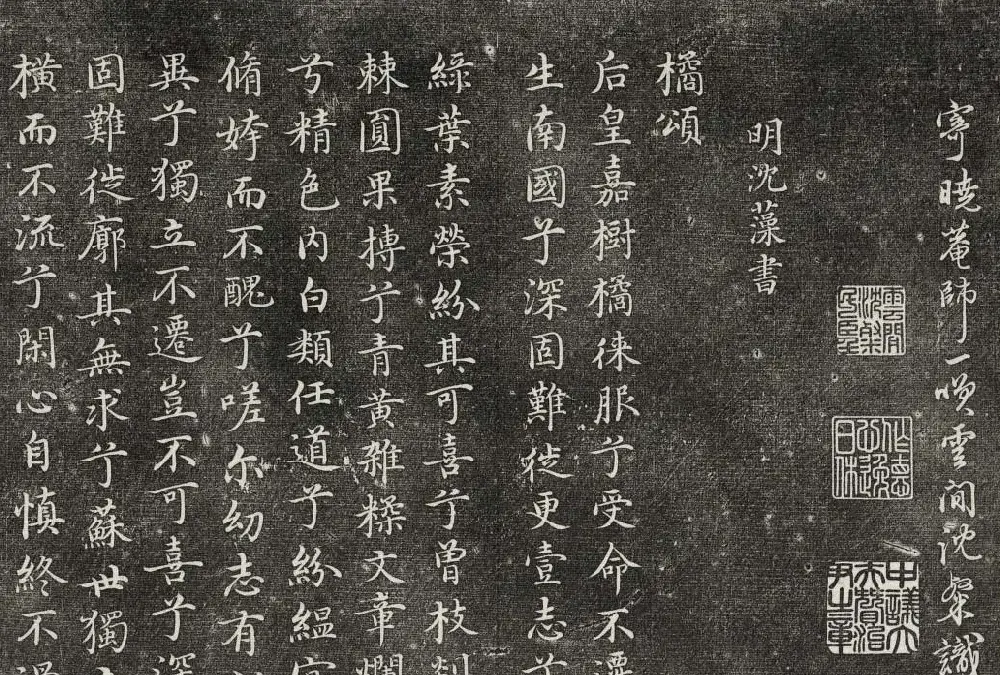 寄曉菴師一咲雲間沈粲識
雲間沈粲
作德心逸日休
中議大夫贊治尹之章
明沈藻書
橘頌
后皇嘉樹橘徠服兮受命不遷
生南國兮深固難徙更壹志兮
綠葉素榮紛其可喜兮曾枝剡
棘圓果摶兮青黃雜糅文章爛
兮精色內白類任道兮紛縕宜
脩姱而不醜兮嗟尔幼志有
異兮獨立不遷豈不可喜兮深
固難徙廓其無求兮蘇世獨
橫而不流兮閑心自慎終不過